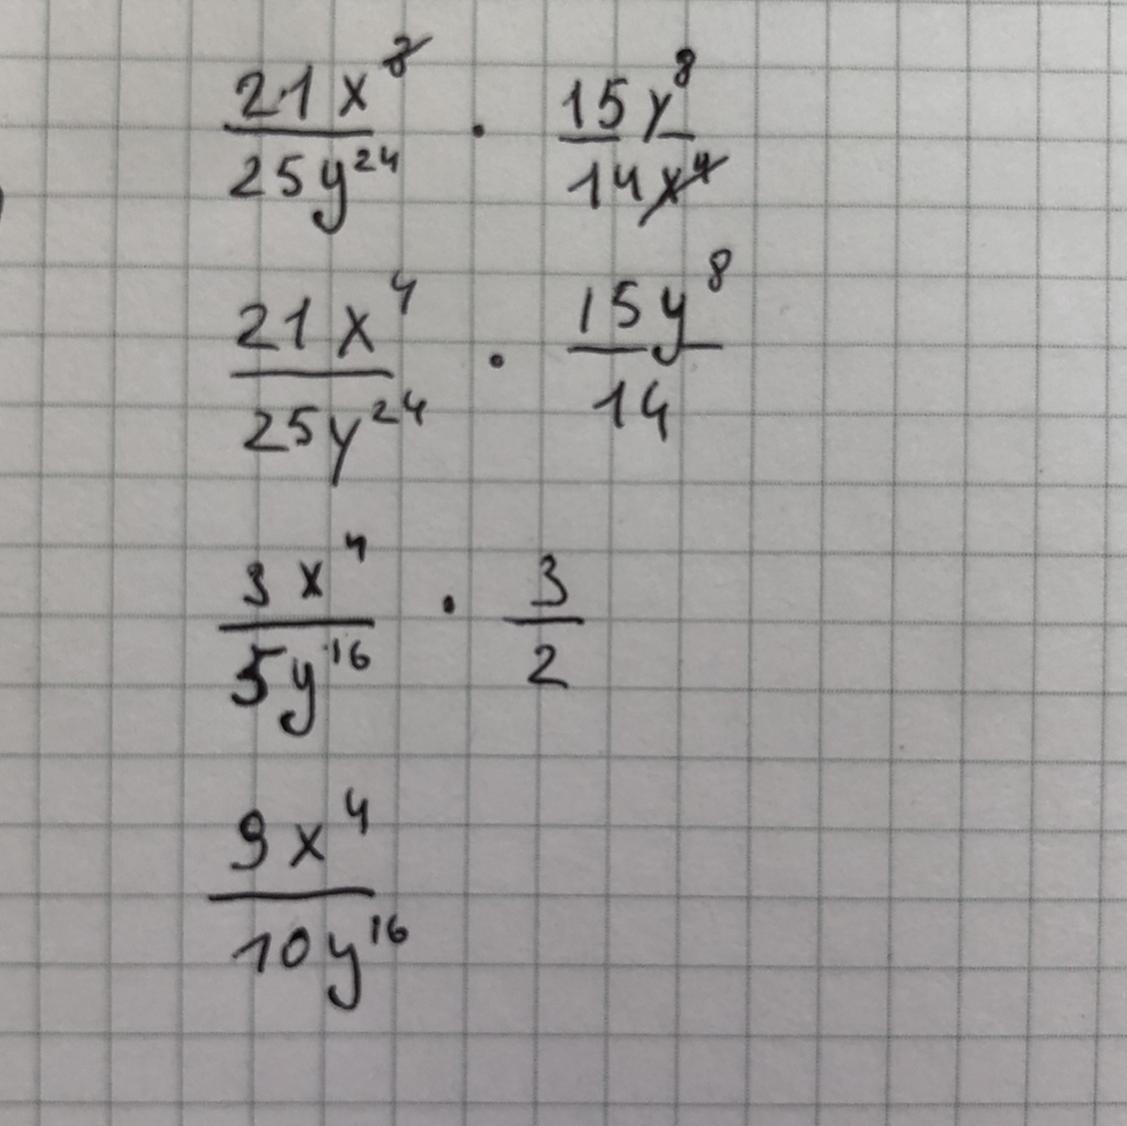 21x^8 / 25y^24 · 15y^8 / 14x^4
21x^4 / 25y^24 · 15y^8 / 14
3x^4 / 5y^16 · 3 / 2
9x^4 / 10y^16